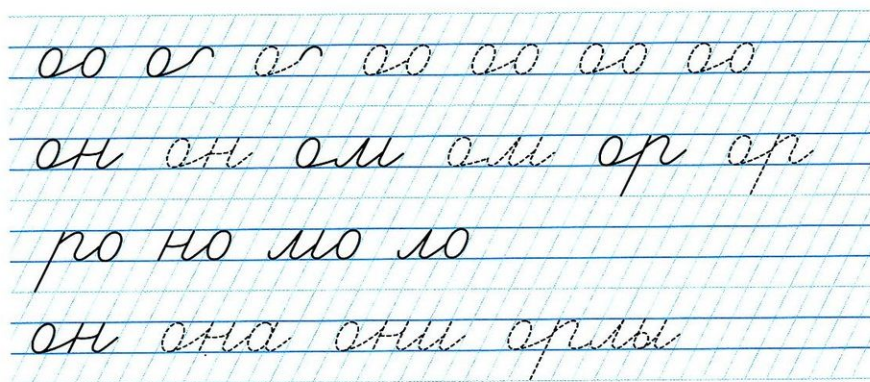 оо о о оо оо оо оо
он он ом ом ор ор
ро но мо ло
он она они орлы